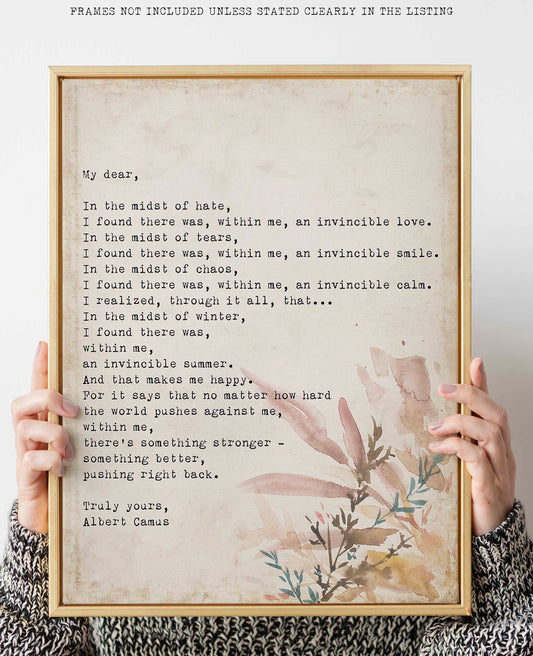 FRAMES NOT INCLUDED UNLESS STATED CLEARLY IN THE LISTING
My dear,
In the midst of hate,
I found there was, within me, an invincible love.
In the midst of tears,
I found there was, within me, an invincible smile.
In the midst of chaos,
I found there was, within me, an invincible calm.
I realized, through it all, that...
In the midst of winter,
I found there was,
within me,
an invincible summer.
And that makes me happy.
For it says that no matter how hard
the world pushes against me,
within me,
there's something stronger -
something better,
pushing right back.
Truly yours,
Albert Camus